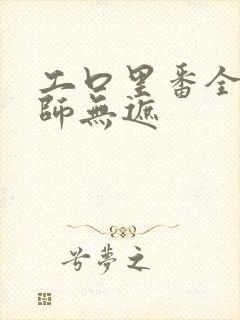 工口里番全
師無遮
兮夢之